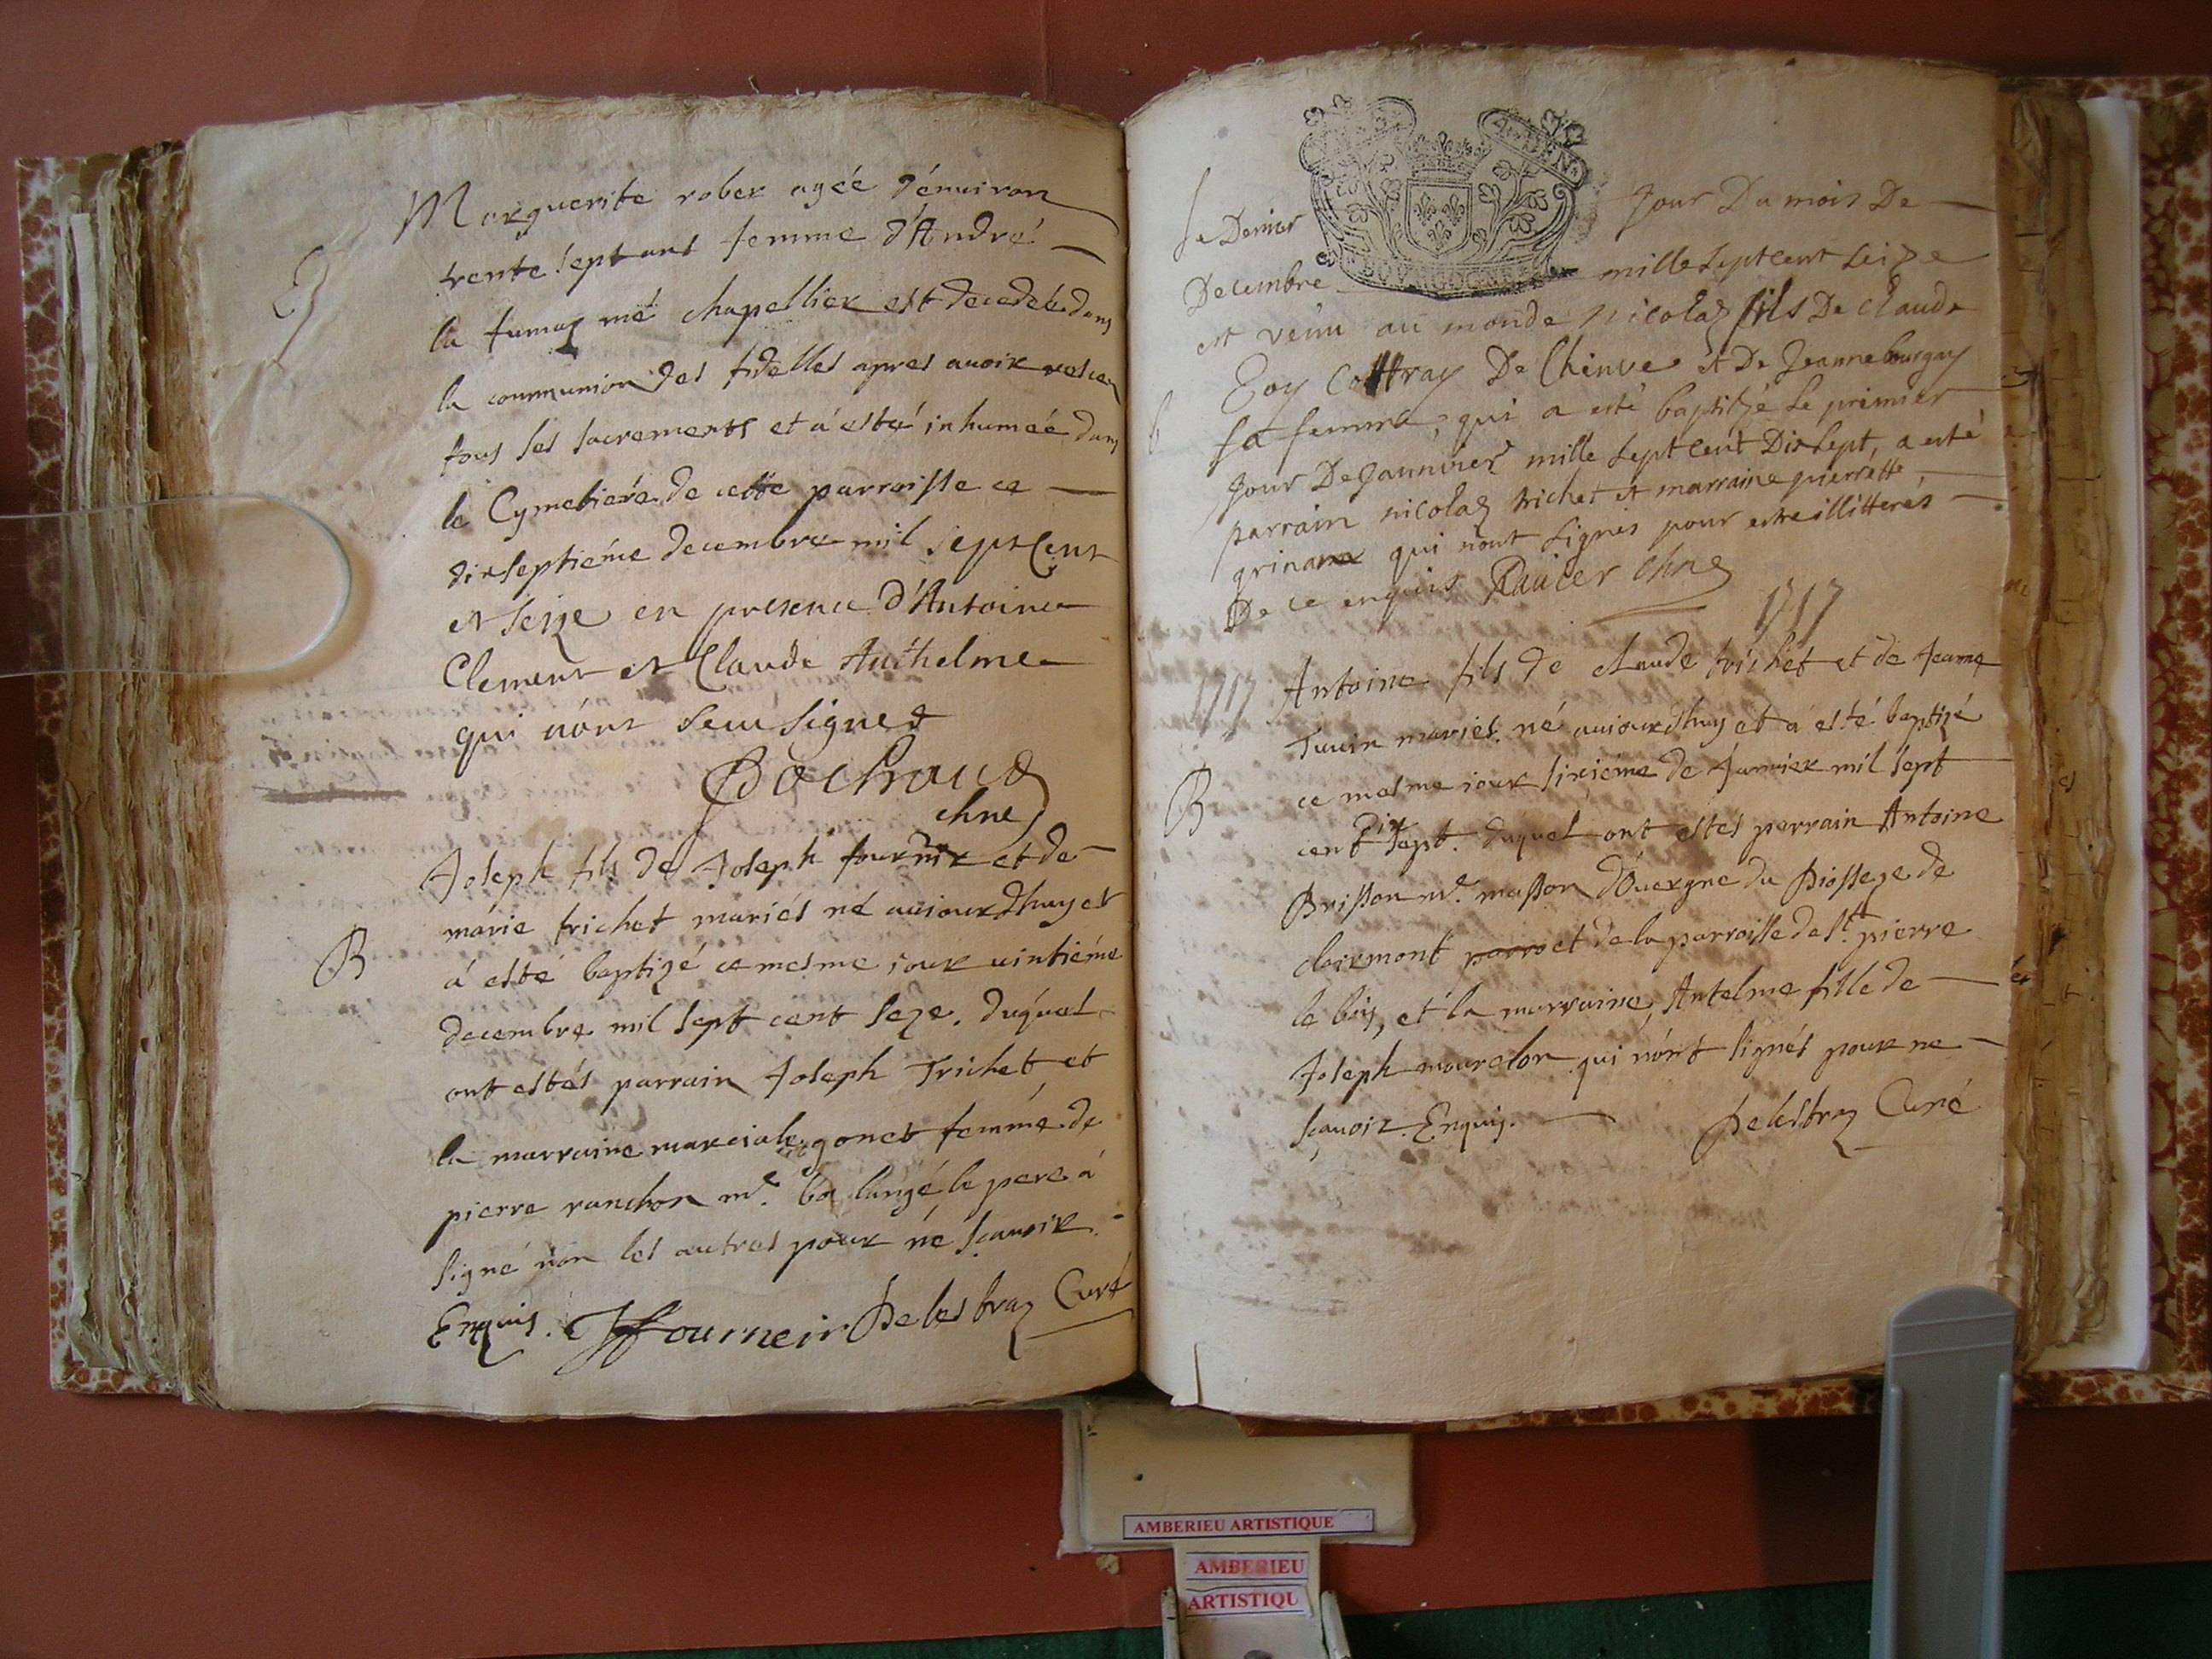 Marguerite rober agée d'enuiron
trente sept ans femme d'André
la fumaz mé chapellier est decedeé dans
la communion des fidelles apres auoir
tous les sacrements et á esté inhumeé dans
le Cymetiere de cette parroisse ce
dixseptiéme decembre mil sept Cent
et seize en presence d'Antoine
Clement et Claude Anthelme
qui nónt sceu signer
Bochrand
chne
B
Joseph fils de Joseph fournir et de
márie trichet mariés né auiourdhuy et
á esté baptizé ce mesme iour uintiéme
decembre mil sept cent seze. duquel
ont estés parrain Joseph Trichet et
la marraine marciale gonet femme de
pierre ranchon me. bolangé le pere á
signé nón les autres pour né sçauoir.
Enquis. JFourneir Delestraz Curé
Le Dernier Jour Du mois De
Decembre mille sept cent seize
est venu au monde nicolaz fils De claude
Goy Cottray De Chinve et De Jeanne bourgay
b
sa femme, qui a esté baptizé Le premier
Jour De Janvier mille sept cent Dix sept, a esté
parrain nicolaz trichet et marraine pierrette
grinam qui nont signés pour estre illitterés
De ce enquis Rauier chne
1717
1717
Antoine fils de claude trichet et de Jeanne
Juuin mariés. né auiourdhuy et á esté baptizé
B
ce mesme iour sixiéme de Januier mil sept
cent dix sept. duquel ont estés perrain Antoine
Brisson me. masson d'Ouergne du Diosseze de
clairmont parro et de la parroisse de St. pierre
le bis, et la marraine Antelme fille de
Joseph mourelon qui nónt signés pour ne
sçauoir. Enquis. Delestraz Curé
AMBERIEU ARTISTIQUE
AMBERIEU
ARTISTIQU